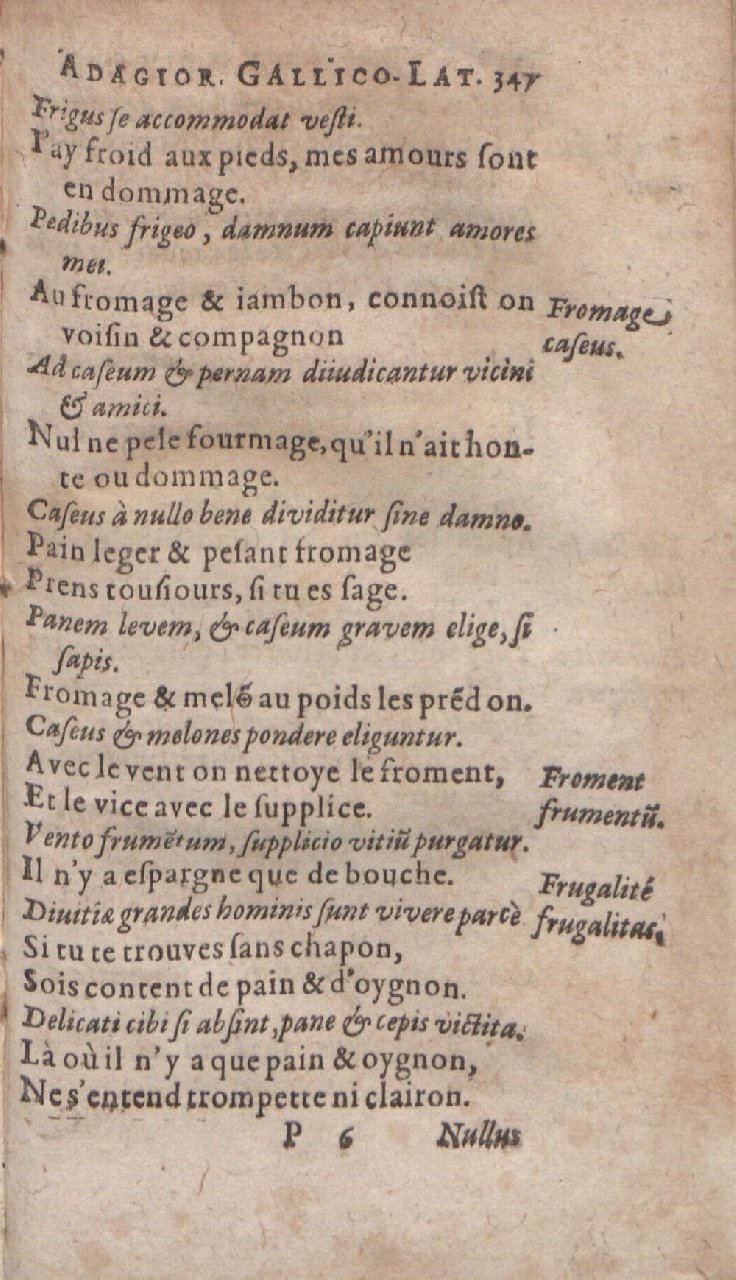 ADAGIOR. GALLICO-LAT. 347
Frigus ſe accommodat veſti.
I'ay froid aux pieds, mes amours ſont
en dommage.
Pedibus frigeo, damnum capiunt amores
mei.
Au fromage & iambon, connoiſt on
voiſin & compagnon
Fromage
caſeus.
Ad caſeum & pernam diiudicantur vicini
& amici.
Nul ne pele fourmage, qu'il n'ait hon-
te ou dommage.
Caſeus à nullo bene dividitur ſine damno.
Pain leger & peſant fromage
Prens touſiours, ſi tu es ſage.
Panem levem, & caſeum gravem elige, ſi
ſapis.
Fromage & melõ au poids les prẽd on.
Caſeus & melones pondere eliguntur.
Avec le vent on nettoye le froment,
Et le vice avec le ſupplice.
Froment
frumentũ.
Vento frumẽtum, ſupplicio vitiũ purgatur.
Il n'y a eſpargne que de bouche.
Frugalité
frugalitas.
Divitiæ grandes hominis ſunt vivere parcè
Si tu te trouves ſans chapon,
Sois content de pain & d'oygnon.
Delicati cibi ſi abſint, pane & cepis victita.
Là où il n'y a que pain & oygnon,
Ne s'entend trompette ni clairon.
P 6 Nullus